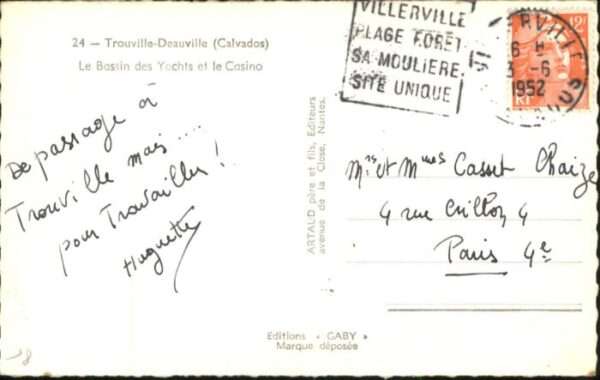 24 — Trouville-Deauville (Calvados)
Le Bassin des Yachts et le Casino
De passage à
Trouville mais....
pour Travailler!
Huguette
ARTAUD père et fils, Editeurs
avenue de la Close, Nantes.
Editions « GABY »
Marque déposée
VILLERVILLE
PLAGE FORÊT
SA MOULIERE
SITE UNIQUE
RVILLE
6 H
3 -6
1952
12F
RF
Mrs et Mmes Cassut Chaize
4 rue Crillon 4
Paris 4e
18